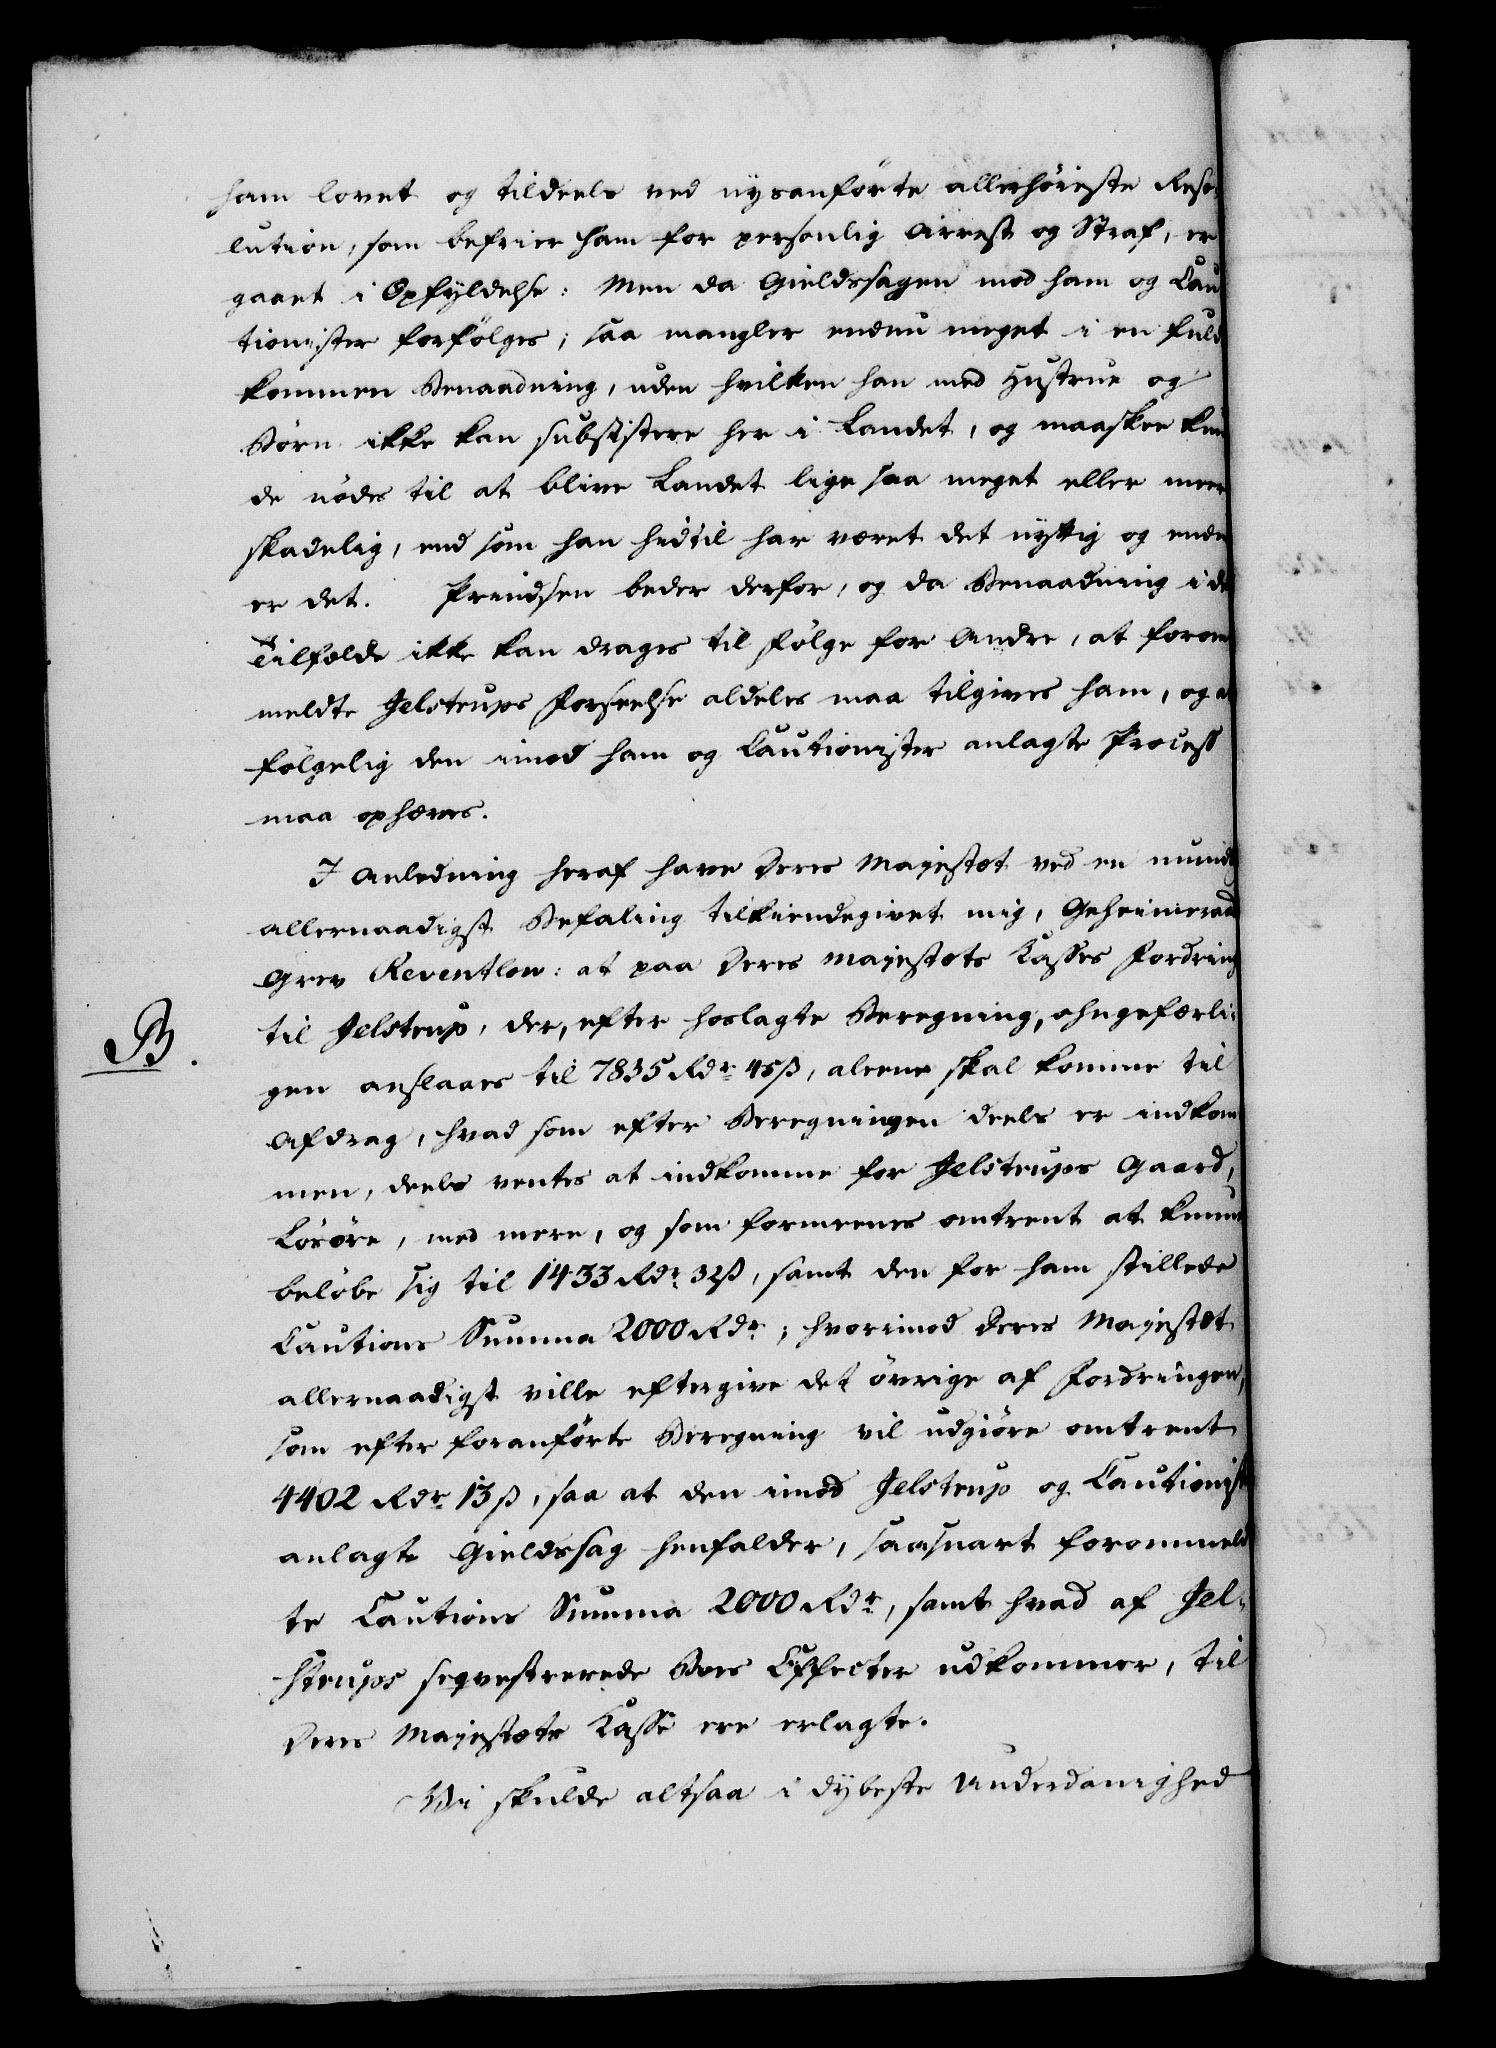 ham lovet og tildeels ved nysanførte allerhøieste Reso-
lution, som befrier ham for personlig Arrest og Straf, er
gaaet i Opfyldelse: Men da Gieldssagen mod ham og Cau
tionister forfølges; saa mangler endnu meget i en fuld
kommen Benaadning, uden hvilken han med Hustrue og
Børn ikke kan subsistere her i Landet, og maaskee kun
de nødes til at blive Landet lige saa meget eller meer
skadelig, end som han hidtil har været det nyttig og endnu
er det. Prindsen beder derfor, og da Benaadning i det
Tilfælde ikke kan drages til Følge for Andre, at forom
meldte Jelstrups Forseelse aldeles maa tilgives ham, og at
følgelig den imod ham og Cautionister anlagte Process
maa ophæves.
I Anledning heraf have Deres Majestæt ved en mundtl
allernaadigst Befaling tilkiendegivet mig, Geheimeraad
Grev Reventlow: at paa Deres Majestæts Kasses Fordring
til Jelstrup, der, efter hoslagte Beregning, ohngefærli-
B.
gen anslaaes til 7835 Rdr 45 ß, aleene skal komme til
Afdrag, hvad som efter Beregningen deels er indkom
men, deels ventes at indkomme for Jelstrups Gaard,
Løsøre, med mere, og som formeenes omtrent at kunne
beløbe sig til 1433 Rdr 32 ß, samt den for ham stillede
Cautions Summa 2000 Rdr; hvorimod Deres Majestæt
allernaadigst ville eftergive det øvrige af Fordringen,
som efter foranførte Beregning vil udgiøre omtrent
4402 Rdr 13 ß, saa at den imod Jelstrup og Cautionist
anlagte Gieldssag henfalder, saasnart forommeld
te Cautions Summa 2000 Rdr, samt hvad af Jel-
strups seqvestrerede Boes Effecter udkommer, til
Deres Majestæts Kasse ere erlagte.
Vi skulde altsaa i dybeste Underdanighed